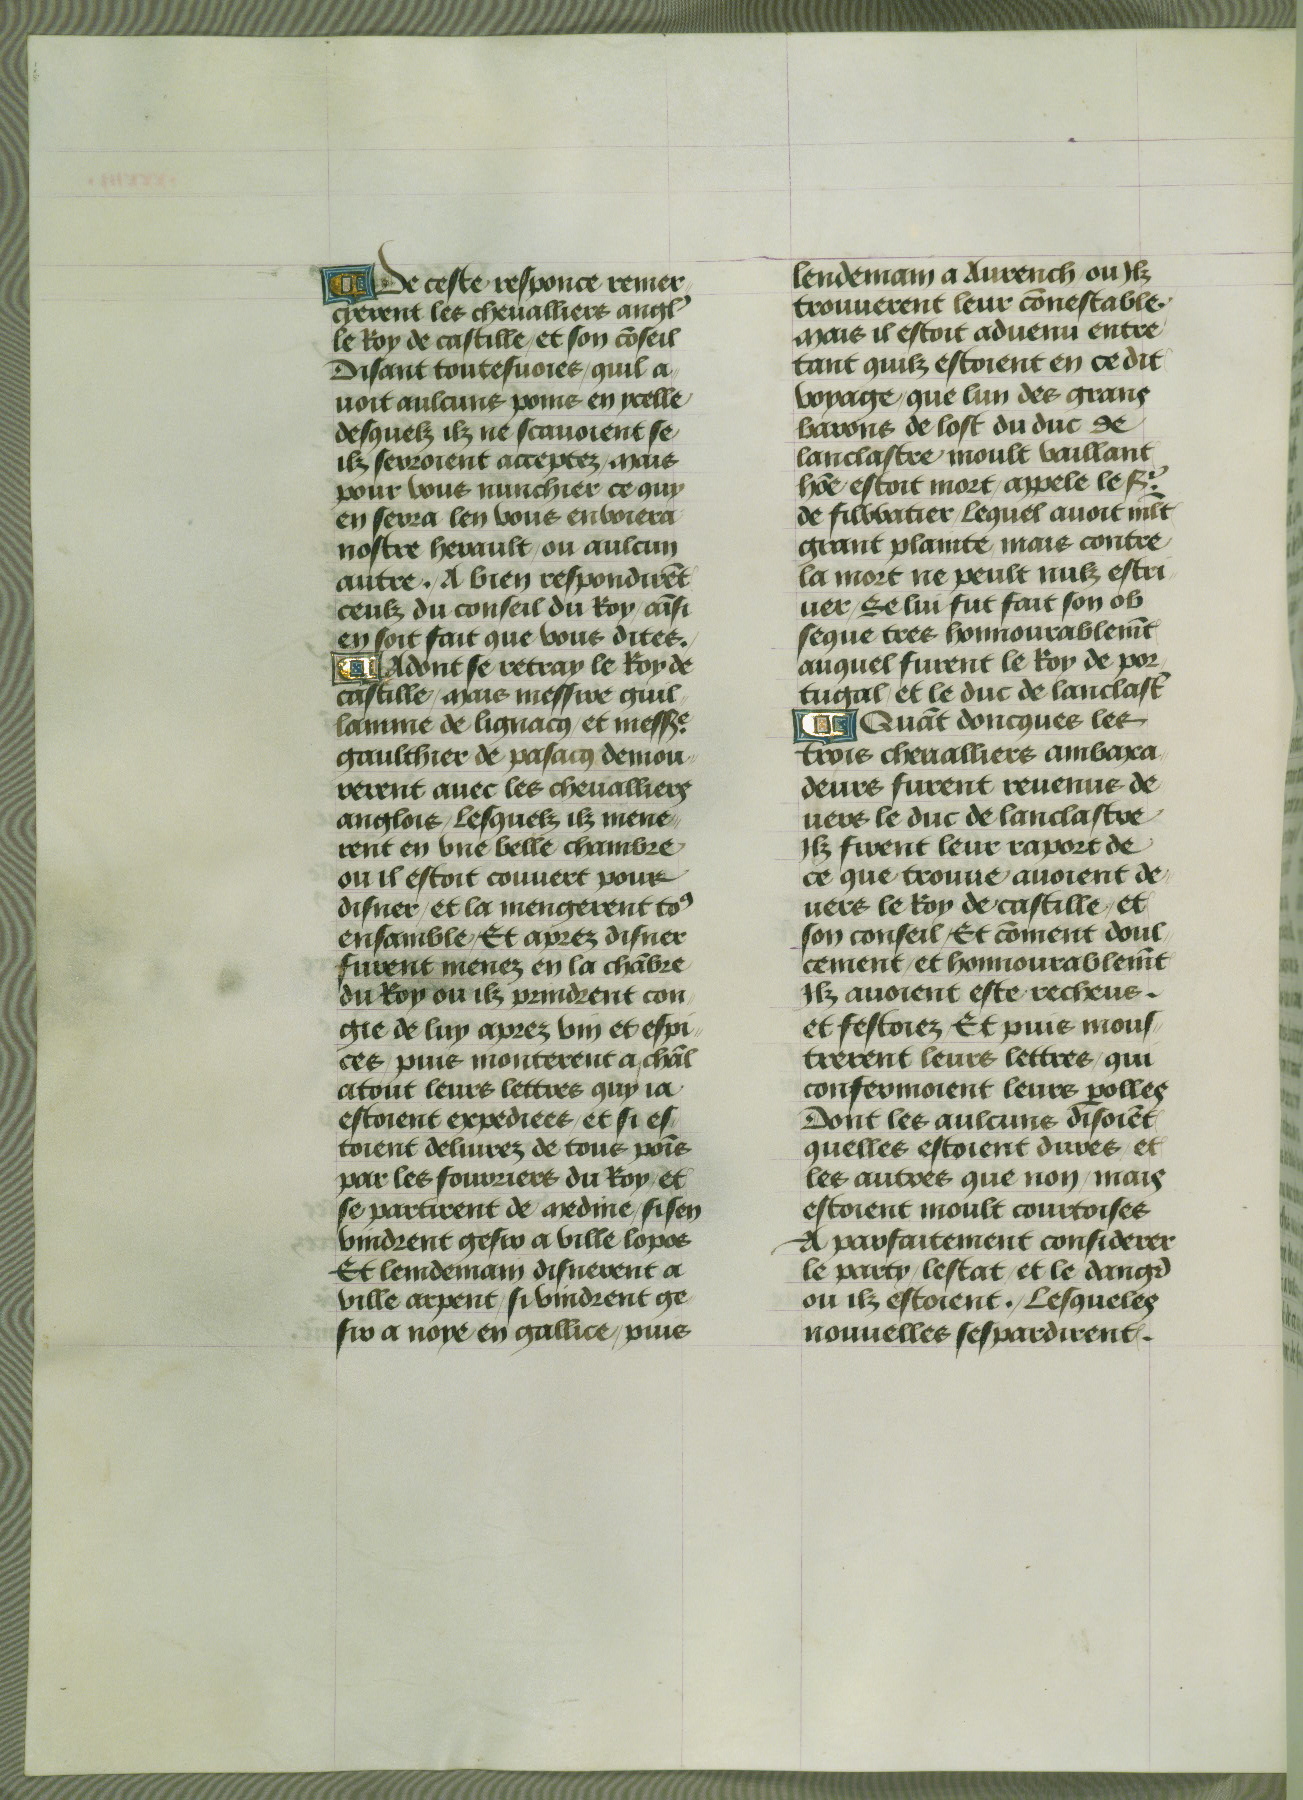 De ceste responce remer
cierent les chevalliers angl'
le Roy de castille / et son cōseil
Disant toutesuoies / quil a
uoit aulcuns poins en ycelle
desquelz ilz ne scauoient se
ilz serroient acceptez / mais
pour vous nunchier ce quy
en serra len vous envoiera
nostre herault / ou aulcun
autre . / A bien respondirēt
ceulz du conseil du Roy / aīsi
en soit fait que vous dites .
Adont se retray le Roy de
castille / mais messire guil
lamme de lignacq et messr̄e.
gaulthier de pasacq demou
rerent auec les cheualliers
anglois / Lesquelz ilz mene
rent en vne belle chambre
ou il estoit couvert pour
disner / et la mengerent to9
ensamble / Et aprez disner
furent menez en la chābre
du Roy ou ilz prindrent con
gie de luy aprez vin et espi
ces / puis monterent a chāl
atout leurs lettres quy ia
estoient expediees / et si es
toient deliurez de tous poīs
par les fourriers du Roy / et
se partirent de medine / si sen
vindrent gesir a ville lopos
Et lendemain disnerent a
ville arpent / si vindrent ge
sir a noye en gallice / puis
lendemain a Aurench ou Ilz
trouuerent leur cōnestable.
mais il estoit aduenu entre
tant quilz estoient en ce dit
voyage / que lun des grans
barons de lost du duc de
lanclastre moult vaillant
hōe estoit mort / appele le sr.
de filwatier / Lequel auoit mlt
grant plainte / mais contre
la mort ne peult nulz estri
uer / Se lui fut fait son ob
seque tres honnourablemt
auquel furent le Roy de por
tugal / et le duc de lanclast'
Quāt doncques les
trois cheualliers ambaxa
deurs furent reuenus de
uers le duc de lanclastre
Ilz firent leur raport de
ce que trouue auoient de
uers le Roy de castille / et
son conseil / Et cōment doul
cement / et honnourablemt
Ilz auoient este recheus .
et festoiez Et puis mous
trerent leurs lettres / qui
confermoient leurs polles
Dont les aulcuns disoiēt
quelles estoient dures / et
les autres que non / mais
estoient moult courtoises
A parfaitement considerer
le party / lestat / et le dangr
ou ilz estoient . / Lesqueles
nouuelles sespardirent .